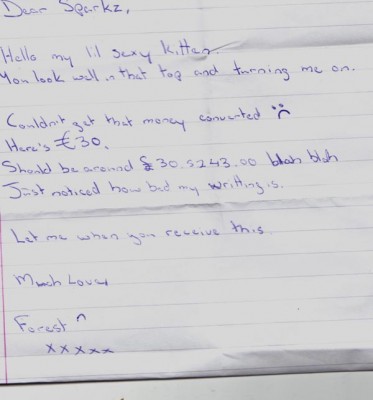 Dear Sparkz,
Hello my lil sexy kitten
You look well in that top and turning me on.
Couldn't get that money converted :(
Here's €30.
Should be around £30.5243.00 blah blah
Just noticed how bad my writting is.
Let me when you receive this
Much Love
Forest ^
xxxxx